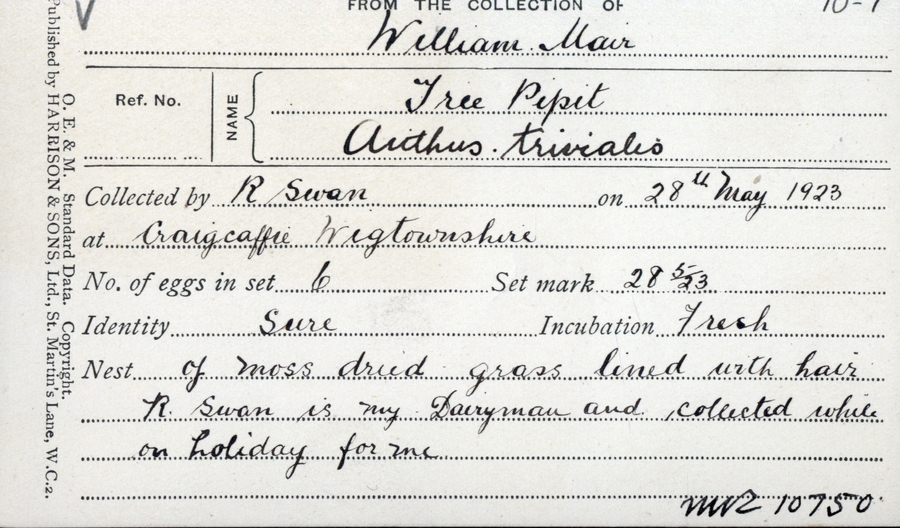 FROM THE COLLECTION OF
William Mair
Ref. No.
NAME
Tree Pipit
Anthus. trivialis
Collected by R Swan on 28th May 1923
at Craigcaffie Wigtownshire
No. of eggs in set 6 Set mark 28 5/23
Identity Sure Incubation Fresh
Nest of moss dried grass lined with hair
R. Swan is my Dairyman and collected while
on holiday for me
MVZ 10750
O. E. & M. Standard Data. Copyright.
Published by HARRISON & SONS, Ltd., St. Martin's Lane, W.C.2.